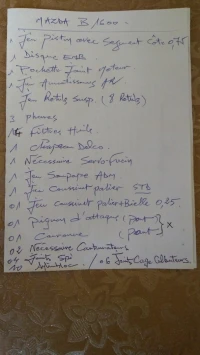 MAZDA B1600.
1 Jeu piston avec Segment Côte 0,75
1 Disque Emb.
1 Pochette Joint Moteur
1 Jeu Amortisseurs AV
Jeu Rotule Susp. (8 Rotules)
3 phares
14 Filtres Huile
1 Chapeau Delco
1 Nécessaire Servo-frein
1 Jeu Soupape Adm
1 Jeu Coussinet palier STD
01 Jeu coussinet palier + Bielle 0,25
01 Pignon d'attaque (pont)
01 Couronne (pont) X
02 Nécessaire Carburateurs
04 Joints Spi
10 / 06 Joints Cache Culbuteurs